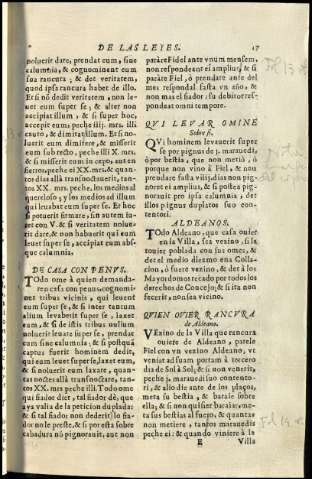 DE LAS LEIES. 17
noluerit dare, prendat eum, sine
calumnia, & cognominent eum
sua rancura, & det veritatem,
quod ipsa rancura habet de illo.
Et si nõ dedit veritatem, non le-
uent eum super se, & alter non
accipiat illum, & si super hoc,
accepit eum; peche iiij. mrs. illi
cauto, & dimittat illum. Et si no-
luerit eum dimittere, & misserit
eum sub tecto, peche illi X. mrs.
& si misserit eum in cepo, aut en
fierros, peche el XX. mrs. & quan-
tos dias allà transnoctauerit, tan-
tos XX. mrs. peche, los medios al
quereloso, y los medios ad illum
qui leuabat eum super se. Et hoc
si potuerit firmare, sin autem sa-
luet con V. & si veritatem nolue-
rit dare, & non habuerit qui eum
leuet super se, accipiat eum abs-
que calumnia.
DE CASA CON PENVS.
TOdo ome à quien demanda-
ren casa con penus, cognomi-
net tribus vicinis, qui leuent
eum super se, & si inter tanctum
alium leuaberit super se, laxet
eum, & si de istis tribus nullum
noluerit leuare super se, prendat
eum sine calumnia, & si postquã
captus fuerit hominem dedit,
qui eum leuet super se, laxet eum,
& si noluerit eum laxare, quan-
tas noctes allà transnoctare, tan-
tos XX. mrs. peche illi. Todo ome
qui fiador diet, tal fiador dè, que
aya valia de la peticion duplada:
& si tal fiador non dederit lo fia-
dor no le preste, & si por esta sobre
cabadura nõ pignorauit, aut non
paràre Fidel ante vnum mensem,
non respondeant ei amplius, & si
paràre Fiel, ò prendare ante del
mes respondal fasta vn año, &
non mas el fiador: su debitor res-
pondeat omni tempore.
QVI LEVAR OMINE
Sobre si.
QVi hominem leuauerit supre
se por pignus de j. maraueda,
ò por bestia, que non metiò, ò
porque non vino à Fiel, & non
prendare fasta viij. dias non pig-
noret ei amplius, & si postea pig-
noraret pro ipsa calumnia, det
illos pignus duplatos suo con-
tentori.
ALDEANOS.
TOdo Aldeano, que casa ouier
en la Villa, sea vezino, si la
touier poblada con sus omes, &
det el medio diezmo ena Colla-
cion, ò fuere vezino, & det à los
Mayordomos recado por todos los
derechos de Concejo; & si ita non
fecerit, non sea vicino.
QVIEN OVIER RANCVRA
de Aldeano.
VEzino de la Villa que rancura
ouiere de Aldeano, parele
Fiel con vn vezino Aldeano, vt
veniat ad suam portam à tercero
dia de Sol à Sol; & si non venerit,
peche j. maraued. suo contento-
ri, & al o die ante de los plaços,
meta su bestia, & baraie sobre
ella; & si non quisier baraiar, me-
ta sus bestias al fuero, & quantas
non metiere, tantos maraued is
peche ei: & quando viniere à la
E Villa